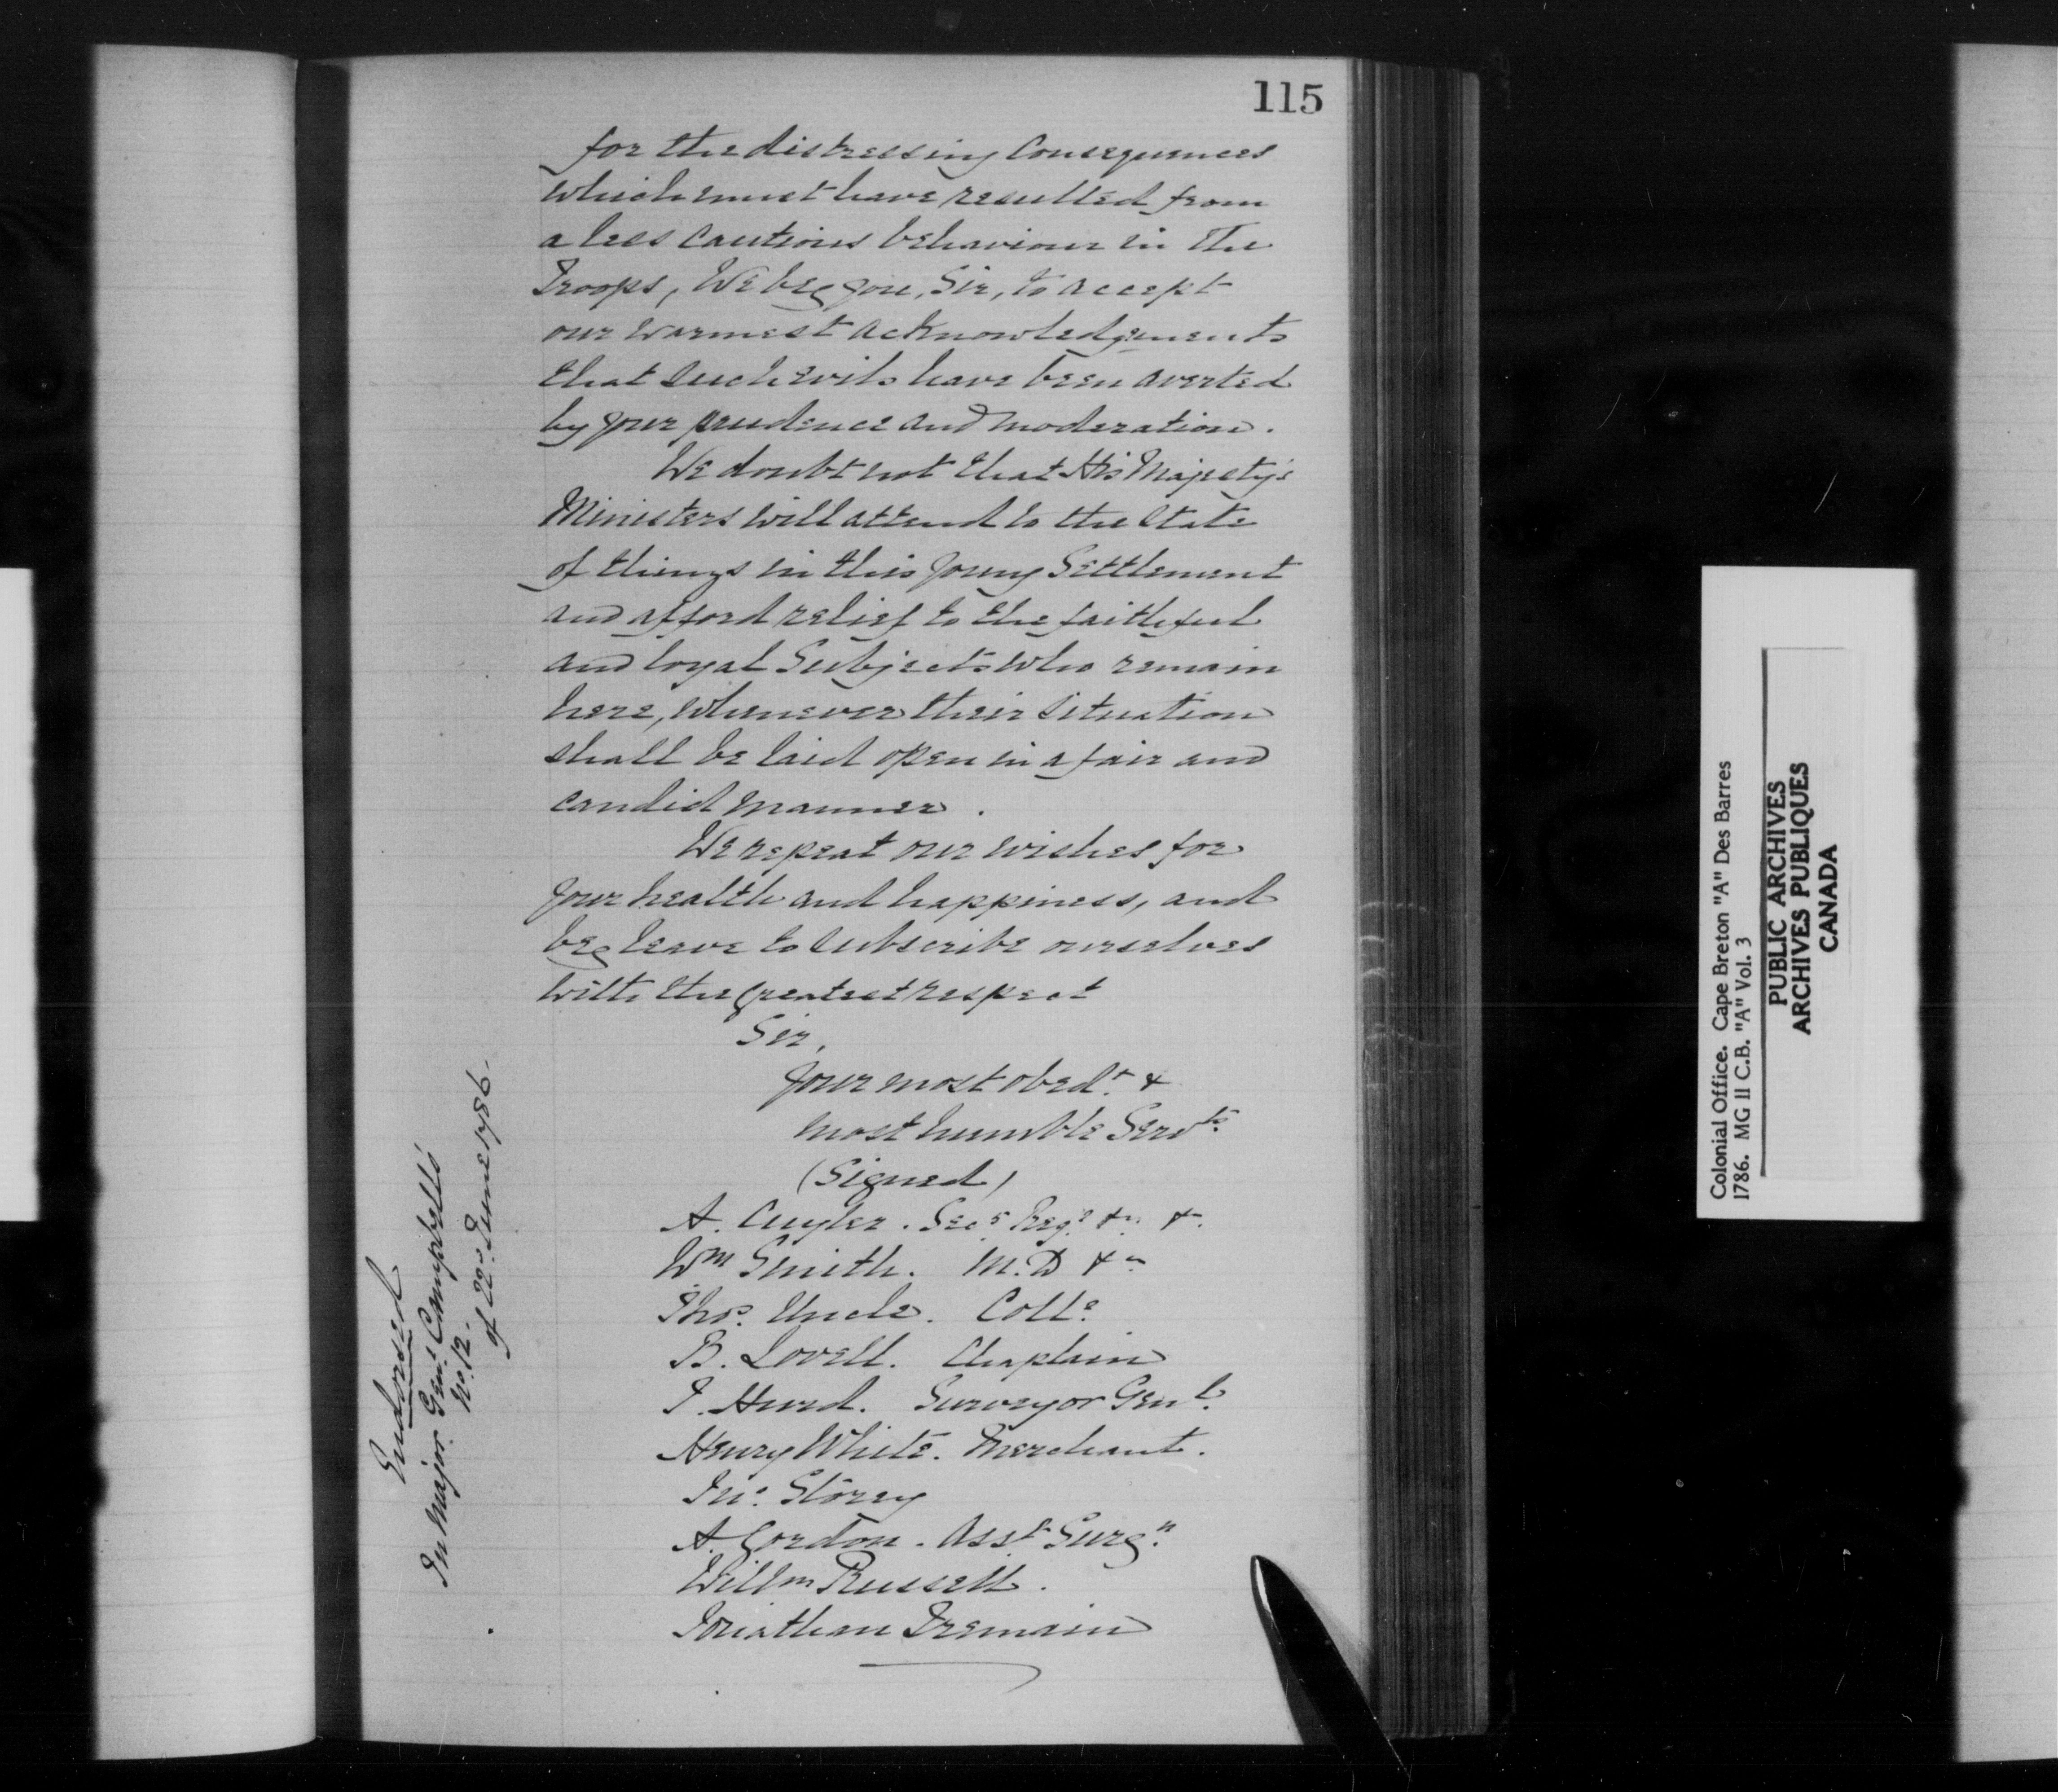 115
for the distressing Consequences
which must have resulted from
a less cautious behaviour in the
Troops, We beg you, Sir, to accept
our warmest acknowledgements
that such evils have been averted
by your prudence and moderation.
We doubt not that His Majesty's
Ministers will attend to the State
of things in this young Settlement
and afford relief to the faithful
and loyal Subjects who remain
here, whenever their Situation
shall be laid open in a fair and
candid manner.
We repeat our wishes for
your health and happiness, and
beg leave to subscribe ourselves
with the greatest respect
Sir,
Your most obedt. &
most humble Servts.
(Signed)
A. Cuyler. Secy. Regr. &c. &.
Wm Smith. M.D &c
Thos. Uncle. Collr.
B. Lovell. Chaplain
T. Hurd. Surveyor Genl.
Henry White. Merchant.
Jno. Storey
A. Gordon. Asst. Surgn.
Willm Russell.
Jonathan Tremain
Endorsed
In Major Genl. Campbell's
No. 12.
of 22nd. June 1786.
Colonial Office. Cape Breton "A" Des Barres
1786. MG 11 C.B. "A" Vol. 3
PUBLIC ARCHIVES
ARCHIVES PUBLIQUES
CANADA